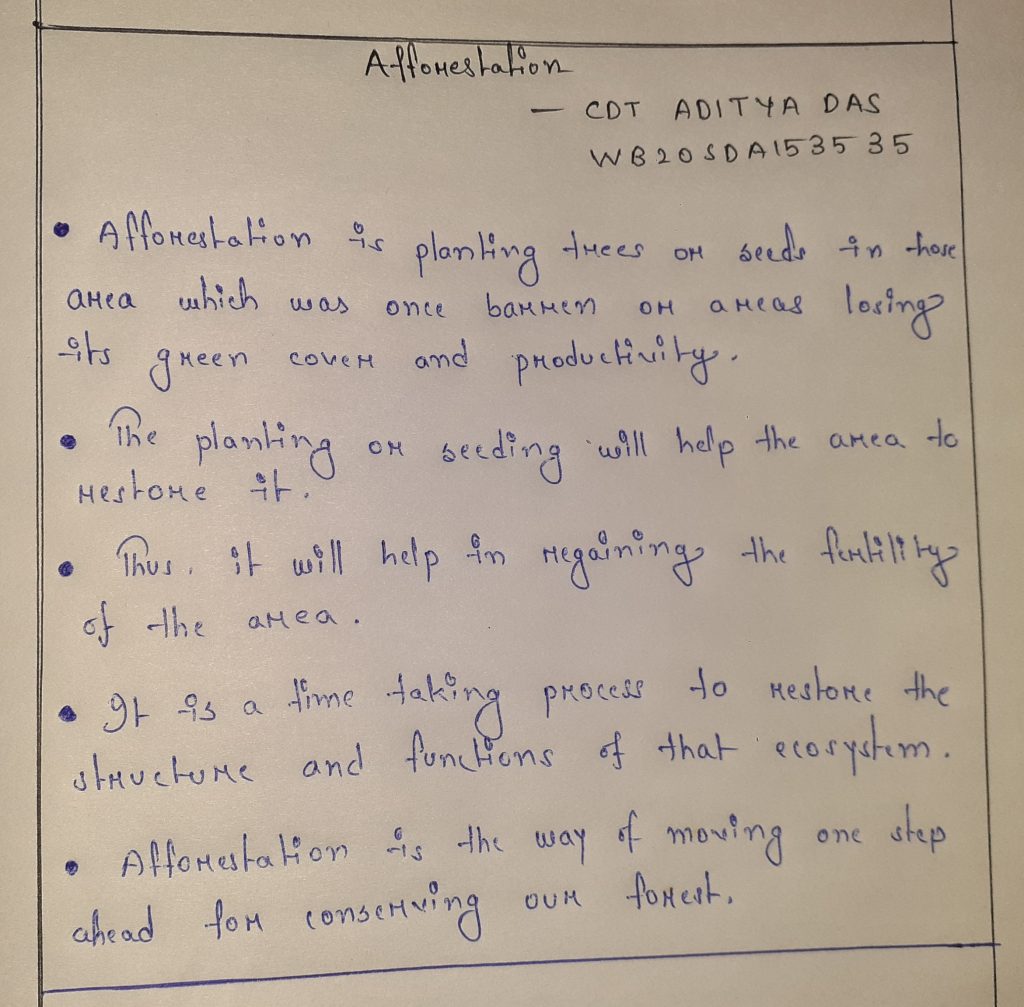 Afforestation
— CDT ADITYA DAS
WB20SDA153535
• Afforestation is planting trees or seeds in those
area which was once barren or areas losing
its green cover and productivity.
• The planting or seeding will help the area to
restore it.
• Thus, it will help in regaining the fertility
of the area.
• It is a time taking process to restore the
structure and functions of that ecosystem.
• Afforestation is the way of moving one step
ahead for conserving our forest.